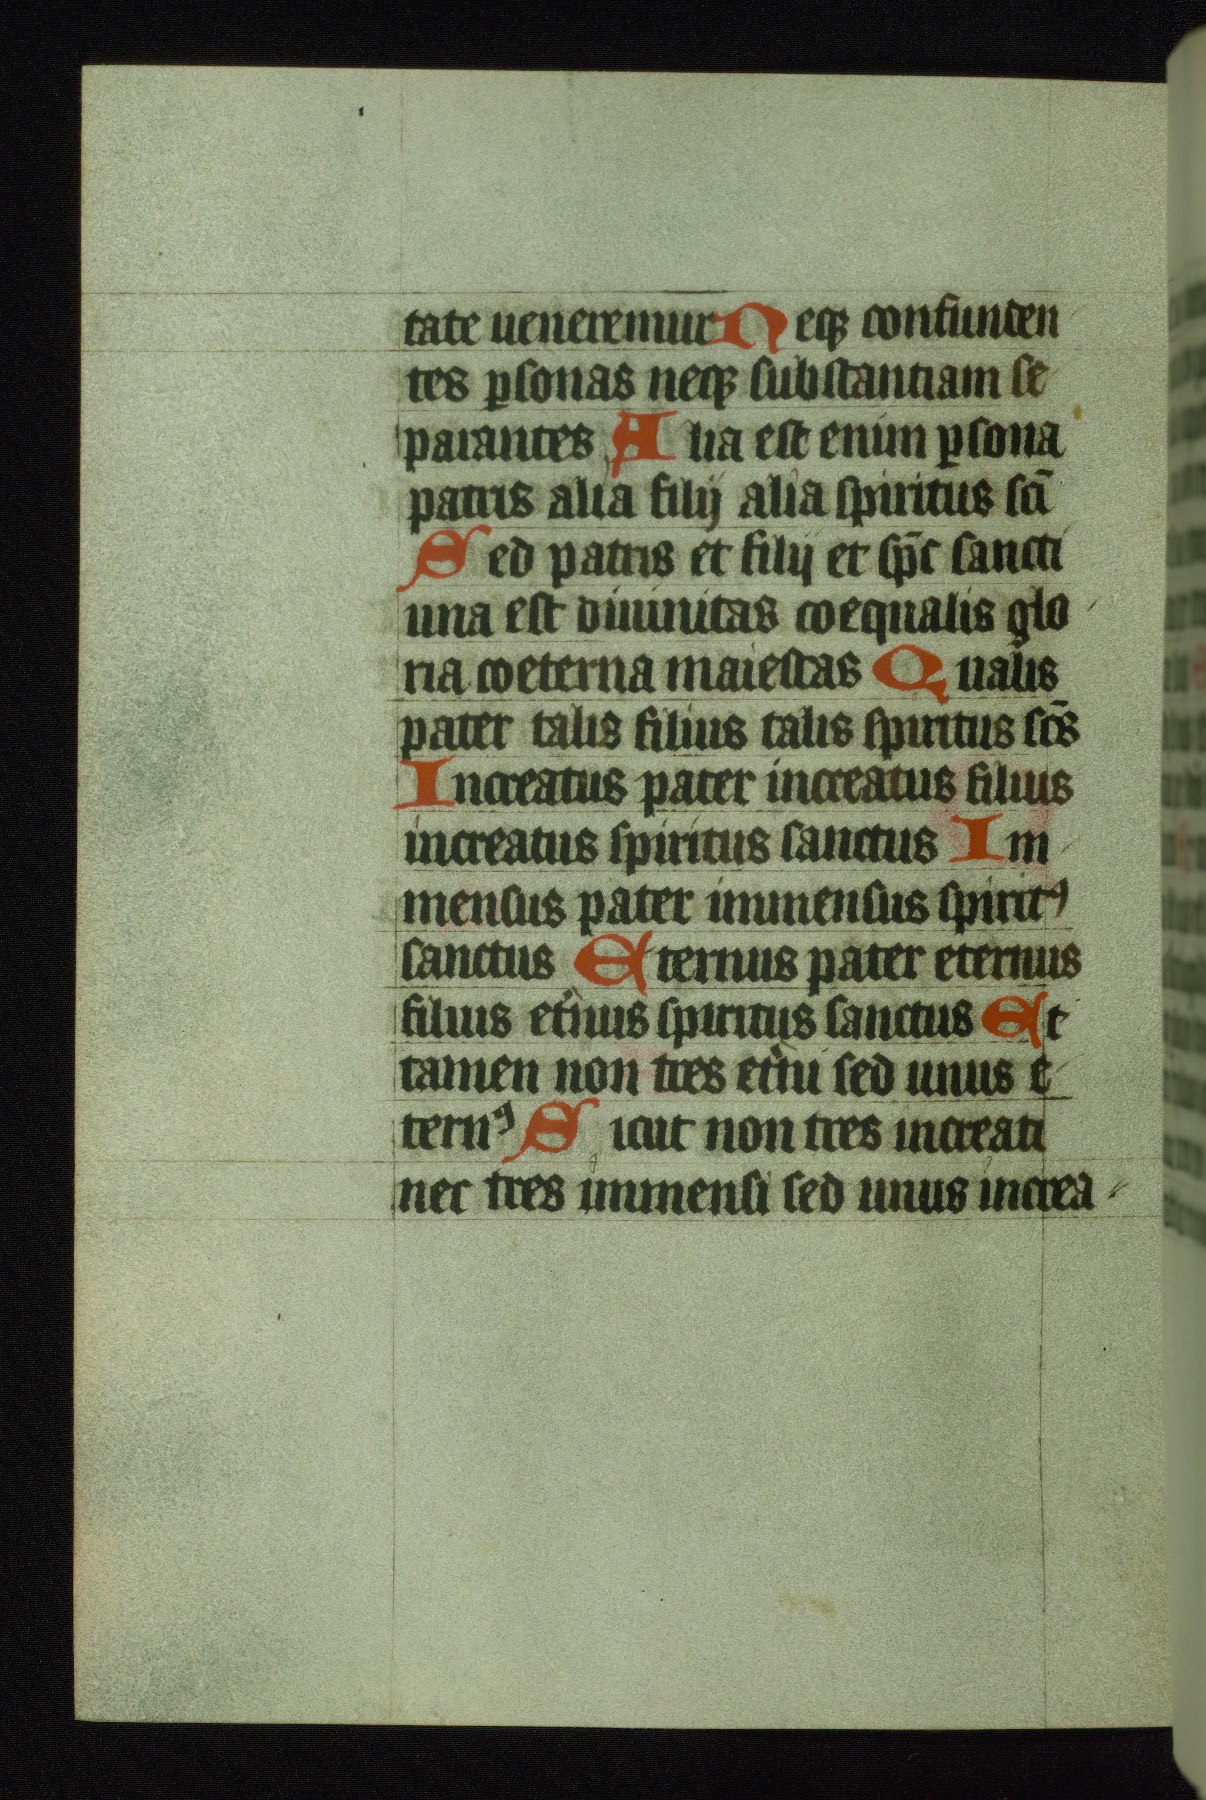 tate ueneremur Neqꝫ confunden
tes ꝑsonas neqꝫ substantiam se
parantes Alia est enim ꝑsona
patris alia filij alia spiritus sc̄i
Sed patris et filij et sp̄c sancti
una est diuinitas coequalis glo
ria coeterna maiestas Qualis
pater talis filius talis spiritus sc̄s
Increatus pater increatus filius
increatus spiritus sanctus Im
mensus pater immensus spiritꝰ
sanctus Eternus pater eternus
filius et̾nus spiritus sanctus Et
tamen non tres et̾ni sed unus e
ternꝰ Sicut non tres increati
nec tres immensi sed unus increa